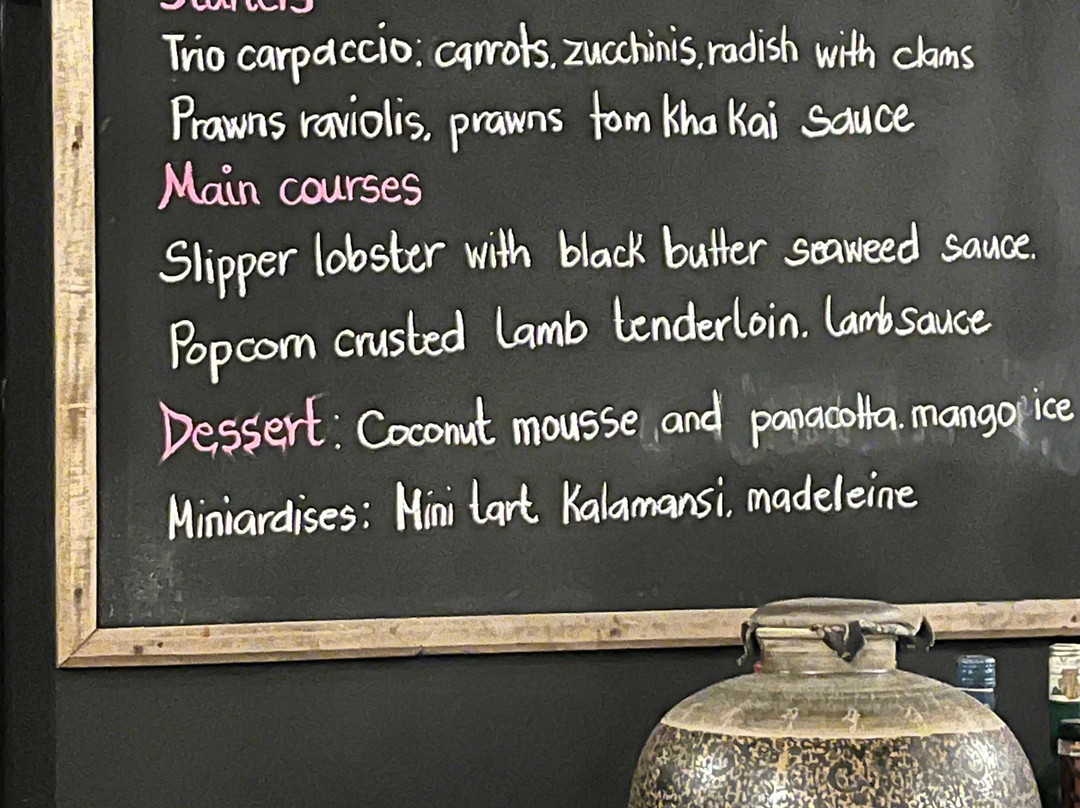 Starters
Trio carpaccio: carrots, zucchinis, radish with clams
Prawns raviolis, prawns tom kha Kai sauce
Main courses
Slipper lobster with black butter seaweed sauce.
Popcorn crusted lamb tenderloin. lamb sauce
Dessert: Coconut mousse and panacotta. mango ice
Miniardises: Mini tart Kalamansi, madeleine